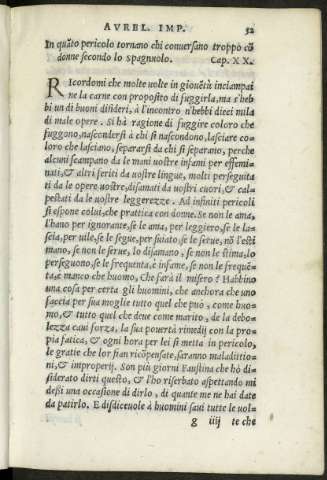 AVREL. IMP. 52
In quãto pericolo tornano chi conuersano troppo cõ
donne secondo lo spagnuolo. Cap. XX.
RIcordomi che molte uolte in giouẽtù inciampai
ne la carne con proposito di fuggirla, ma s'heb
bi un di buoni disideri, à l'incontro n'hebbi dieci mila
di male opere. Si hà ragione di fuggire coloro che
fuggono, nascondersi à chi si nascondono, lasciare co=
loro che lasciano, separarsi da chi si separano, perche
alcuni scampano da le mani uostre infami per effemi=
nati, & altri feriti da uostre lingue, molti perseguita
ti da le opere uostre, disamati da uostri cuori, & cal=
pestati da le uostre leggerezze. Ad infiniti pericoli
si espone colui, che prattica con donne. Se non le ama,
l'hano per ignorante, se le ama, per leggiero, se le la=
scia, per uile, se le segue, per suiato, se le serue, nõ l'esti
mano, se non le serue, lo disamano, se non le stima, lo
perseguono, se le frequenta, è infame, se non le frequẽ=
ta, è manco che huomo, Che farà il misero? Habbino
una cosa per certa gli huomini, che anchora che uno
faccia per sua moglie tutto quel che può, come huo=
mo, & tutto quel che deue come marito, de la debo=
lezza caui forza, la sua pouertà rimedij con la pro=
pia fatica, & ogni hora per lei si metta in pericolo,
le gratie che lor fian ricõpensate, saranno maladittio=
ni, & improperij. Son più giorni Faustina che hò di=
siderato dirti questo, & l'ho riserbato aspettando mi
dessi una occasione di dirlo, di quante me ne hai date
da patirlo. E disdiceuole à huomini saui tutte le uol=
g iiij te che